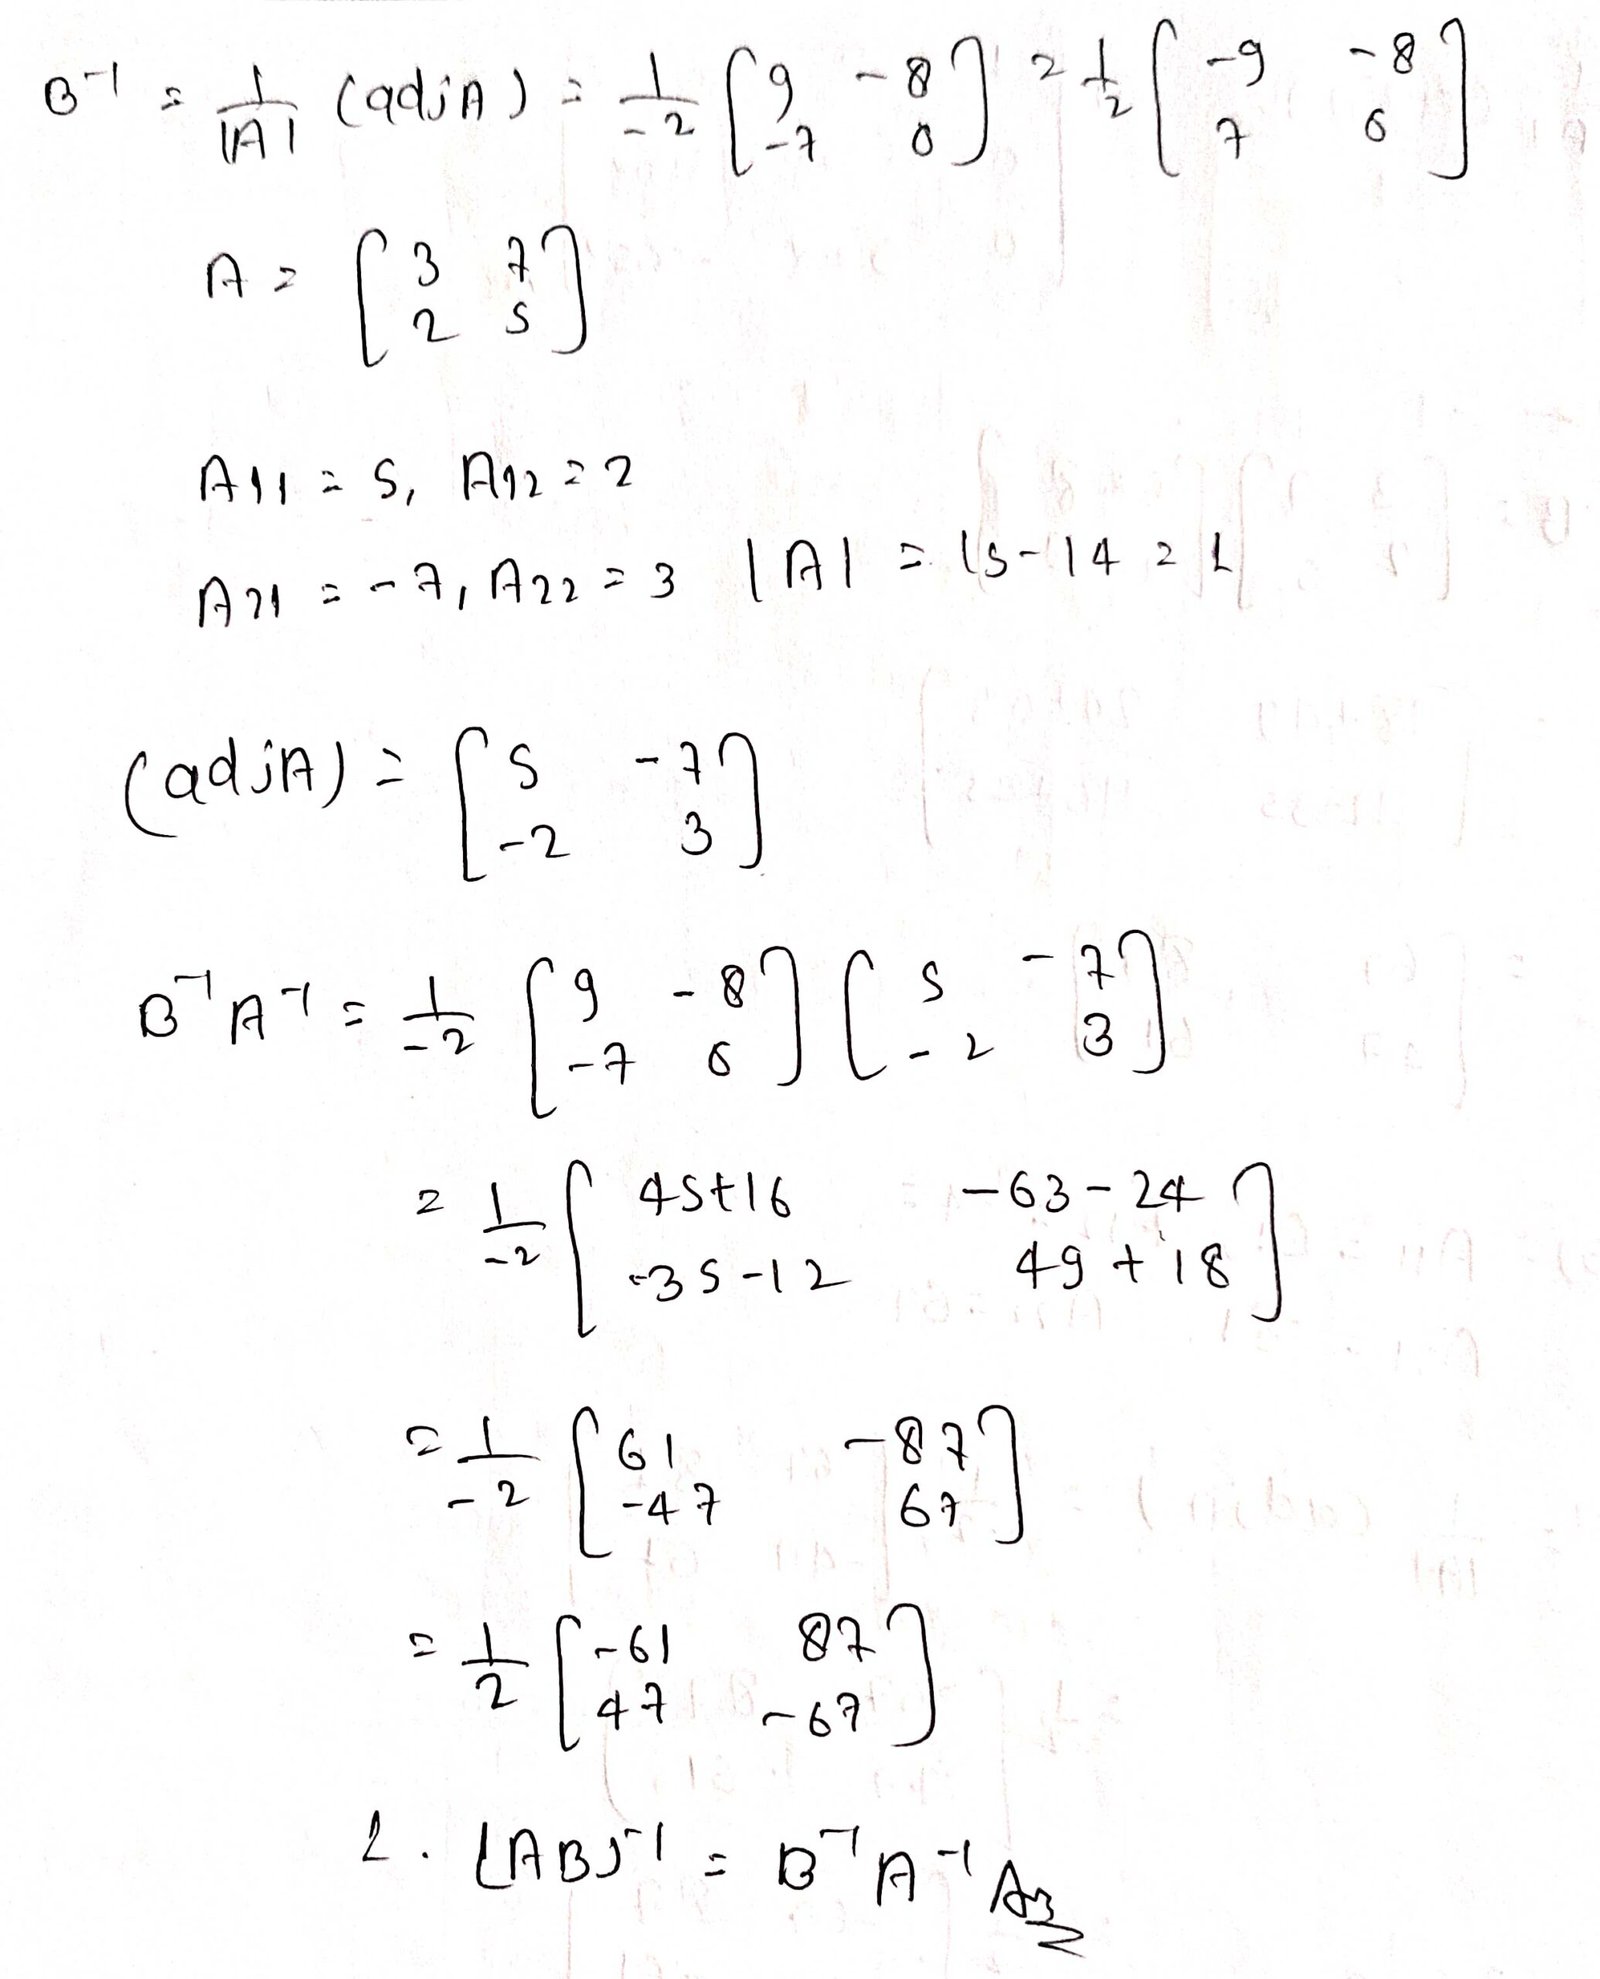 B⁻¹ = 1/|A| (adjA) = 1/-2 [9 -8; -7 6] = 1/2 [-9 -8; 7 6]
A = [3 7; 2 5]
A11 = 5, A12 = 2
A21 = -7, A22 = 3 |A| = 15-14 = 1
(adjA) = [5 -7; -2 3]
B⁻¹A⁻¹ = 1/-2 [9 -8; -7 6] [5 -7; -2 3]
= 1/-2 [45+16 -63-24; -35-12 49+18]
= 1/-2 [61 -87; -47 67]
= 1/2 [-61 87; 47 -67]
2. (AB)⁻¹ = B⁻¹A⁻¹ Ans